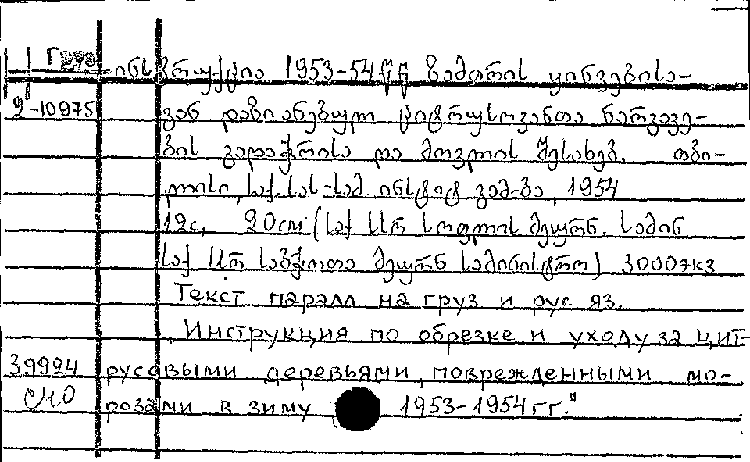 Груз ინსტრუქცია 1953-54წწ ზამთრის ყინვებისა-
9-10975 გან დაზიანებულ ციტრუსოვანთა ნარგავე-
ბის გადაჭრისა და მოვლის შესახებ. თბი-
ლისი, საქ. სას-სამ. ინსტიტ გამ-ბა, 1954
12с, 20см (საქ სსრ სოფლის მეურნ. სამინ
საქ სსრ საბჭოთა მეურნ სამინისტრო) 3000экз
Текст паралл на груз и рус яз.
Инструкция по обрезке и уходу за цит-
39994 русовыми деревьями, поврежденными мо-
розами в зиму 1953-1954 гг."